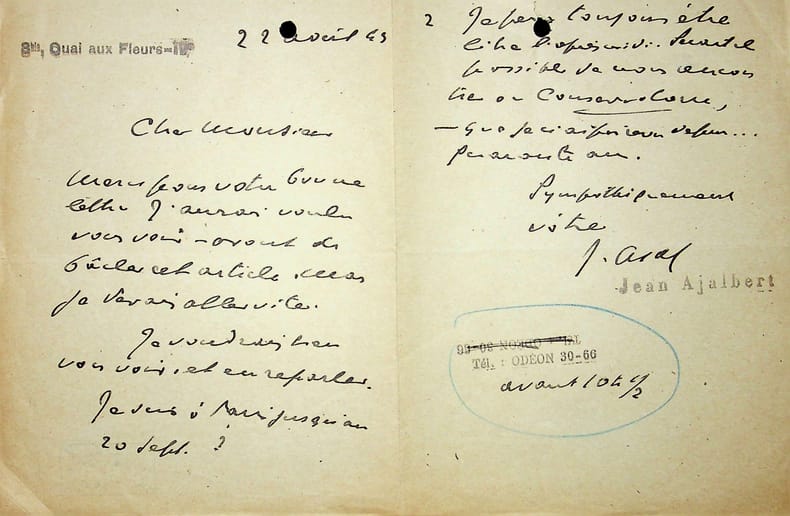 8bis, Quai aux Fleurs-IVe
22 avril 43
Cher Monsieur
Merci pour votre bonne
lettre J'aurais voulu
vous voir - avant de
bâcler cet article. Mais
je devais aller vite.
Je voudrais bien
vous voir, et en reparler.
Je suis à Paris jusqu'au
20 sept. ?
2
Je peux toujours être
libre l'après-midi. Serait-il
possible de nous rencon
trer au Conservatoire,
— que je n'ai pas revu depuis...
Sympathiquement
vôtre
J. Ajal
Jean Ajalbert
Tél. : ODÉON 30-66
Tél. : ODÉON 30-66
avant 10h 1/2